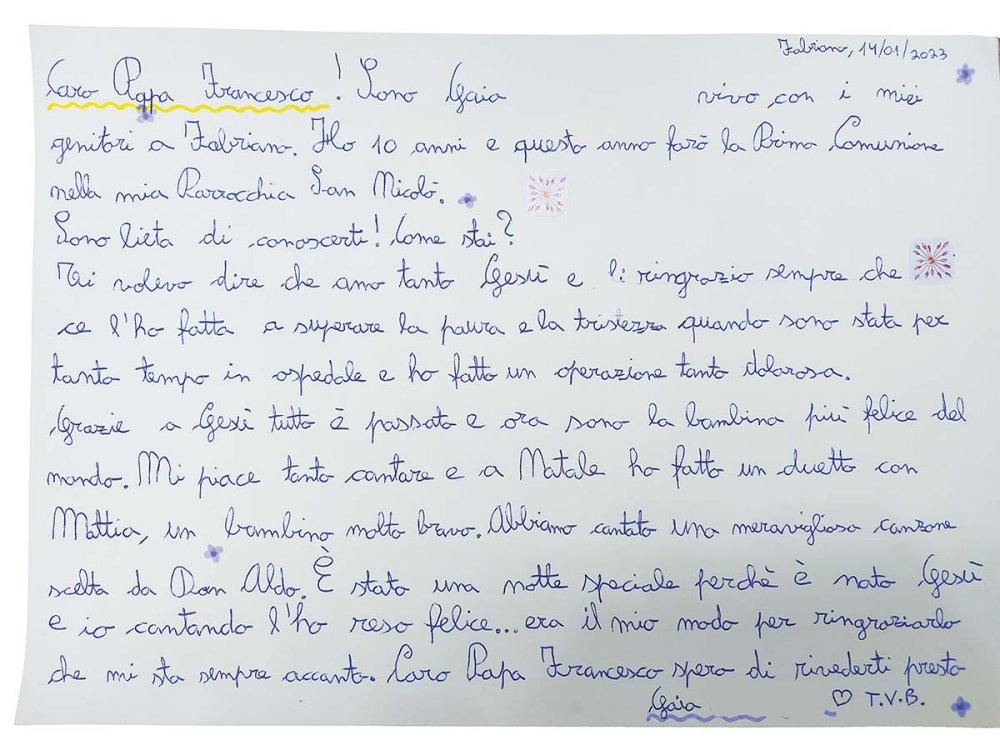 Fabriano, 14/01/2023
Caro Papa Francesco! Sono Gaia vivo con i miei
genitori a Fabriano. Ho 10 anni e questo anno farò la Prima Comunione
nella mia Parrocchia San Nicolò.
Sono lieta di conoscerti! Come stai?
Ti volevo dire che amo tanto Gesù e li ringrazio sempre che
ce l'ho fatta a superare la paura e la tristezza quando sono stata per
tanto tempo in ospedale e ho fatto un operazione tanto dolorosa.
Grazie a Gesù tutto è passato e ora sono la bambina più felice del
mondo. Mi piace tanto cantare e a Natale ho fatto un duetto con
Mattia, un bambino molto bravo. Abbiamo cantato una meravigliosa canzone
scelta da Don Aldo. È stato una notte speciale perchè è nato Gesù
e io cantando l'ho reso felice... era il mio modo per ringraziarlo
che mi sta sempre accanto. Caro Papa Francesco spero di rivederti presto
Gaia ♡ T.V.B.